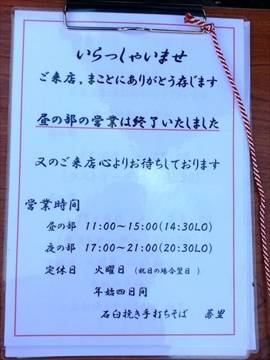 いらっしゃいませ
ご来店、まことにありがとう存じます
昼の部の営業は終了いたしました
又のご来店心よりお待ちしております
営業時間
昼の部 11:00～15:00(14:30LO)
夜の部 17:00～21:00(20:30LO)
定休日 火曜日 (祝日の場合翌日)
年始四日間
石臼挽き手打ちそば